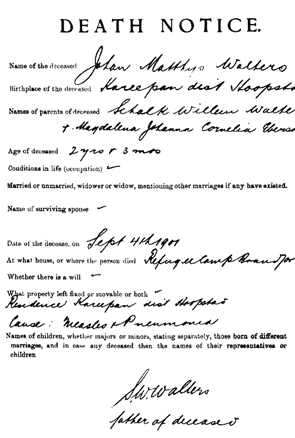 DEATH NOTICE.
Name of the deceased Johan Matthys Walters
Birthplace of the deceased Kareepan dist Hoopsta
Names of parents of deceased Schalk Willem Walte
+ Magdalena Johanna Cornelia
Age of deceased 2 yrs + 3 mos
Conditions in life (occupation) –
Married or unmarried, widower or widow, mentioning other marriages if any have existed.
Name of surviving spouse –
Date of the decease, on Sept 4th 1901
At what house, or where the person died Refugee Camp Brandfor
Whether there is a will –
What property left fixed or movable or both –
Residence Kareepan dist Hoopstad
Cause: Measles + Pneumonia
Names of children, whether majors or minors, stating separately, those born of different
marriages, and in case any deceased then the names of their representatives or
children
S.W. Walters
father of deceased